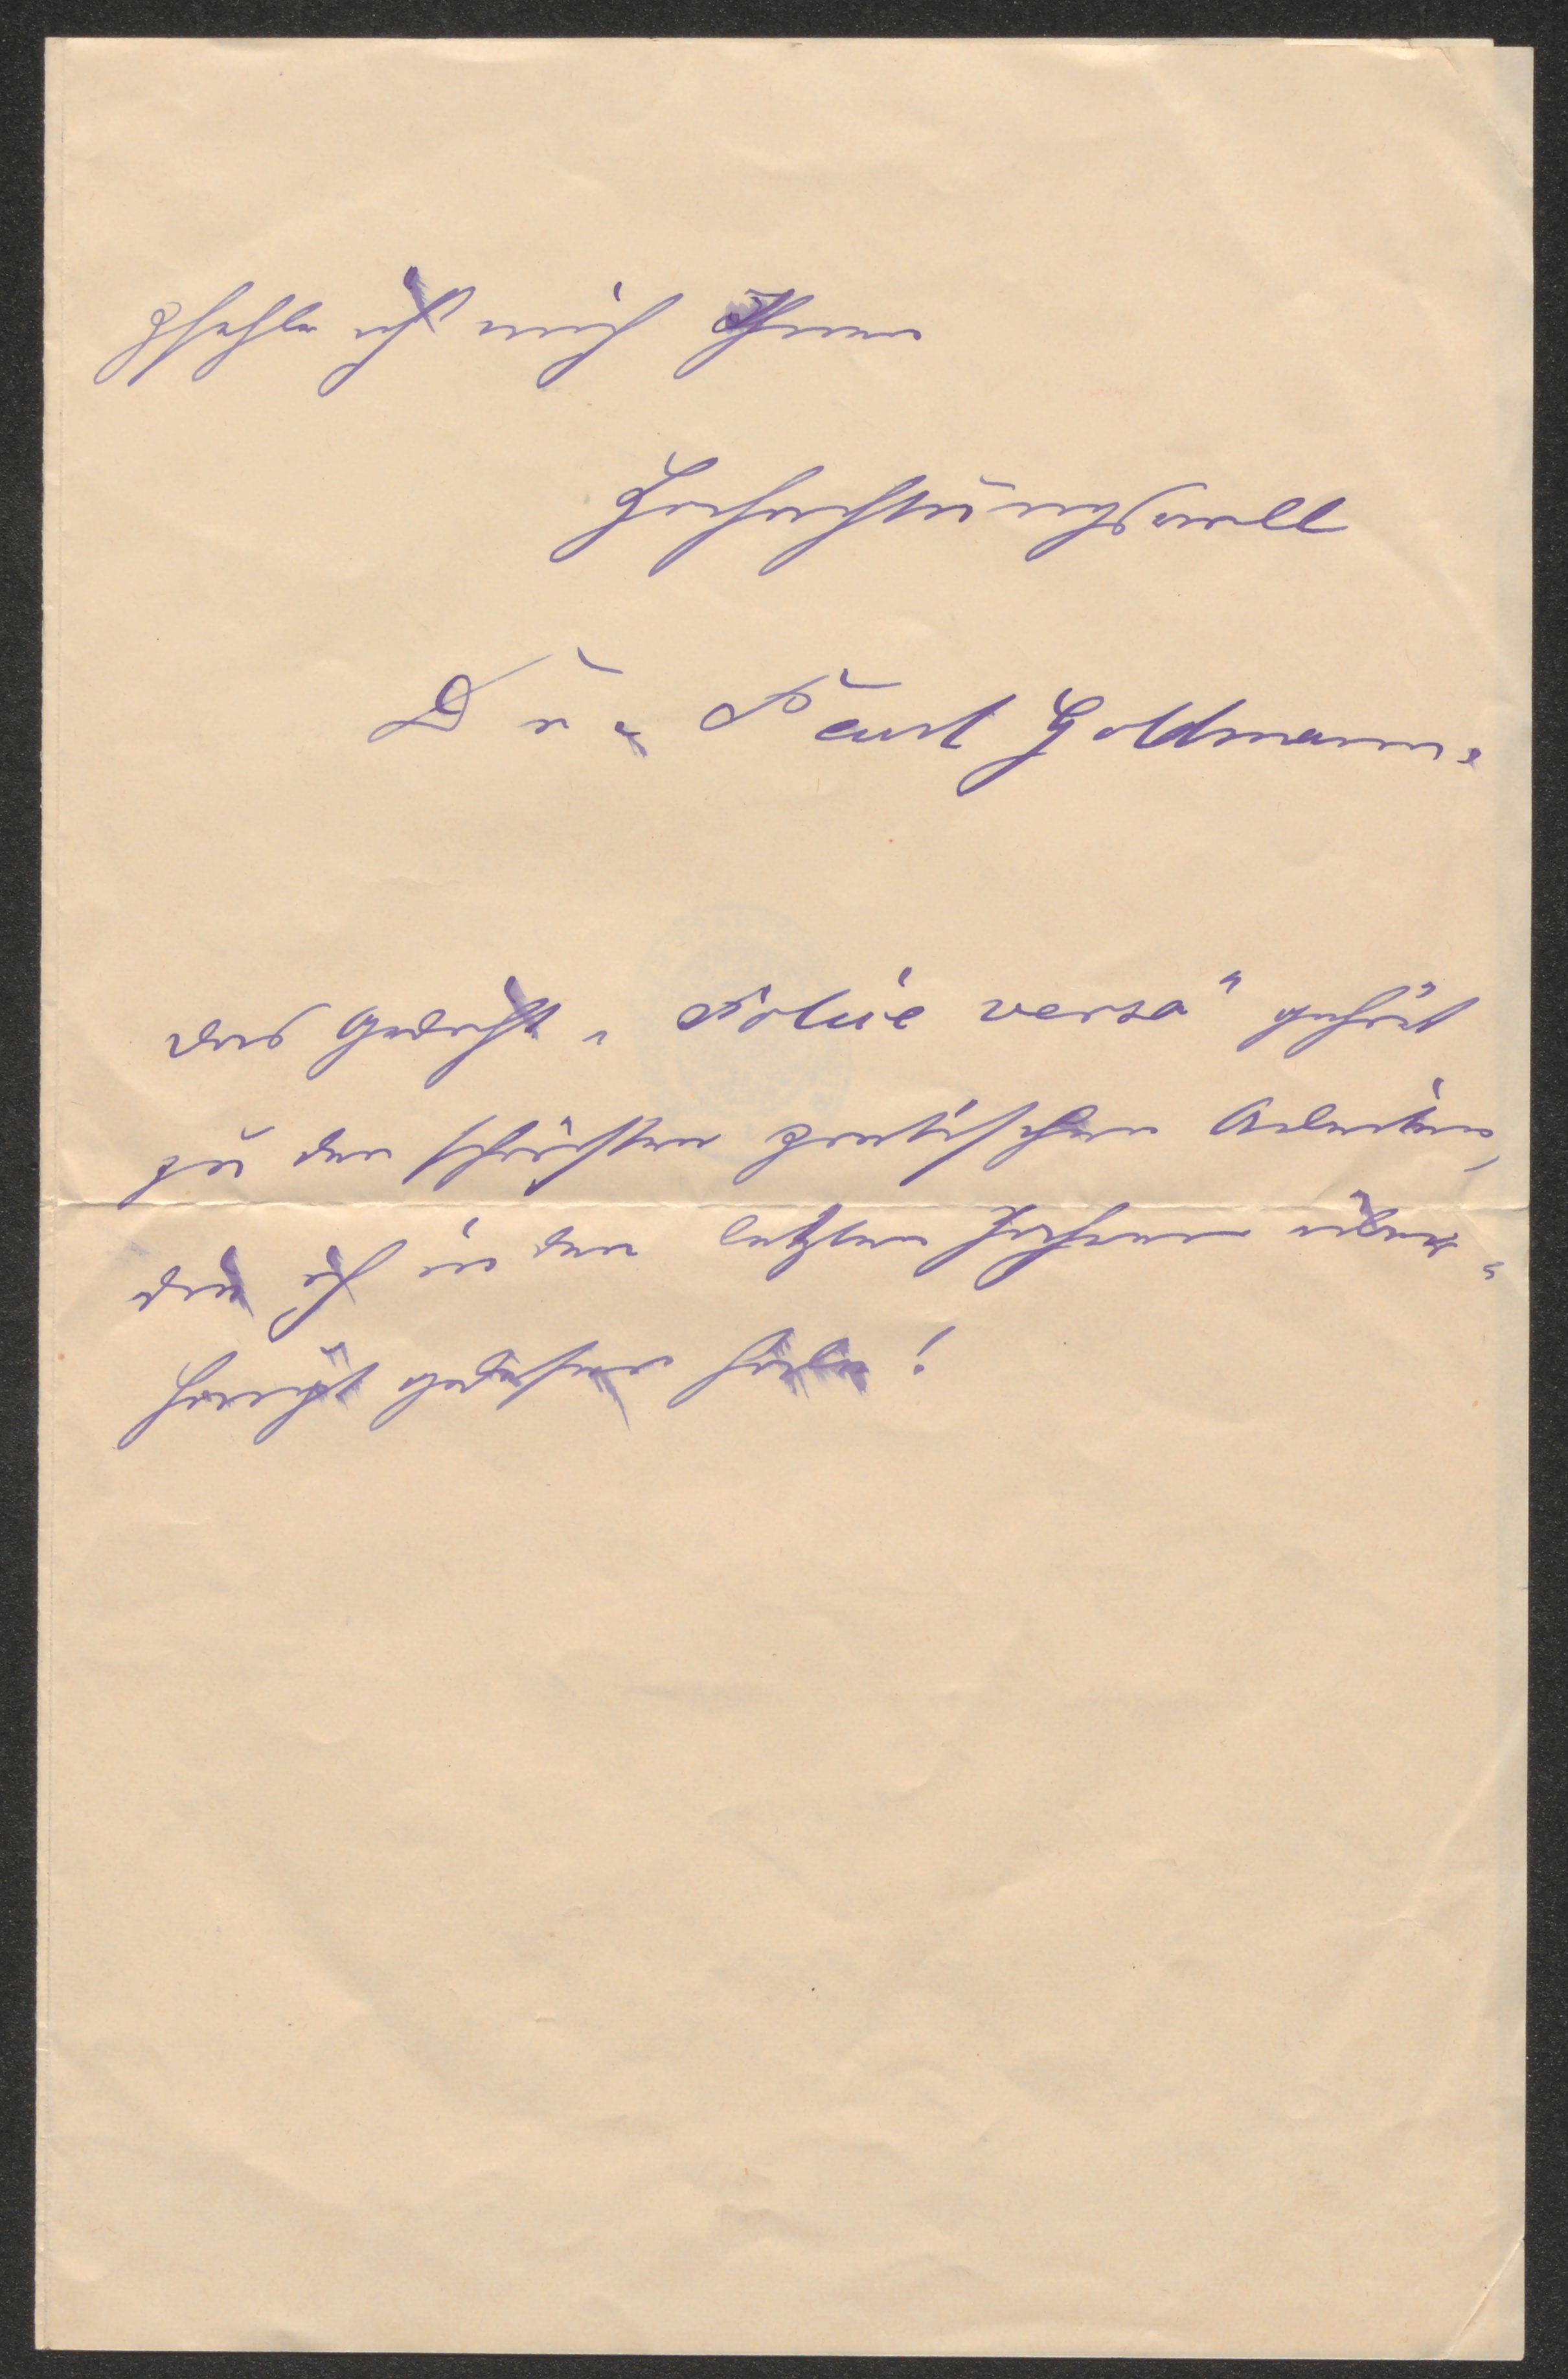 pfehle ich mich Ihnen
Hochachtungsvoll
Dr. Paul Goldmann.
Das Gedicht „Police verso“ gehört
zu den schönsten poetischen Arbeiten,
die ich in den letzten Jahren über-
haupt gelesen habe!